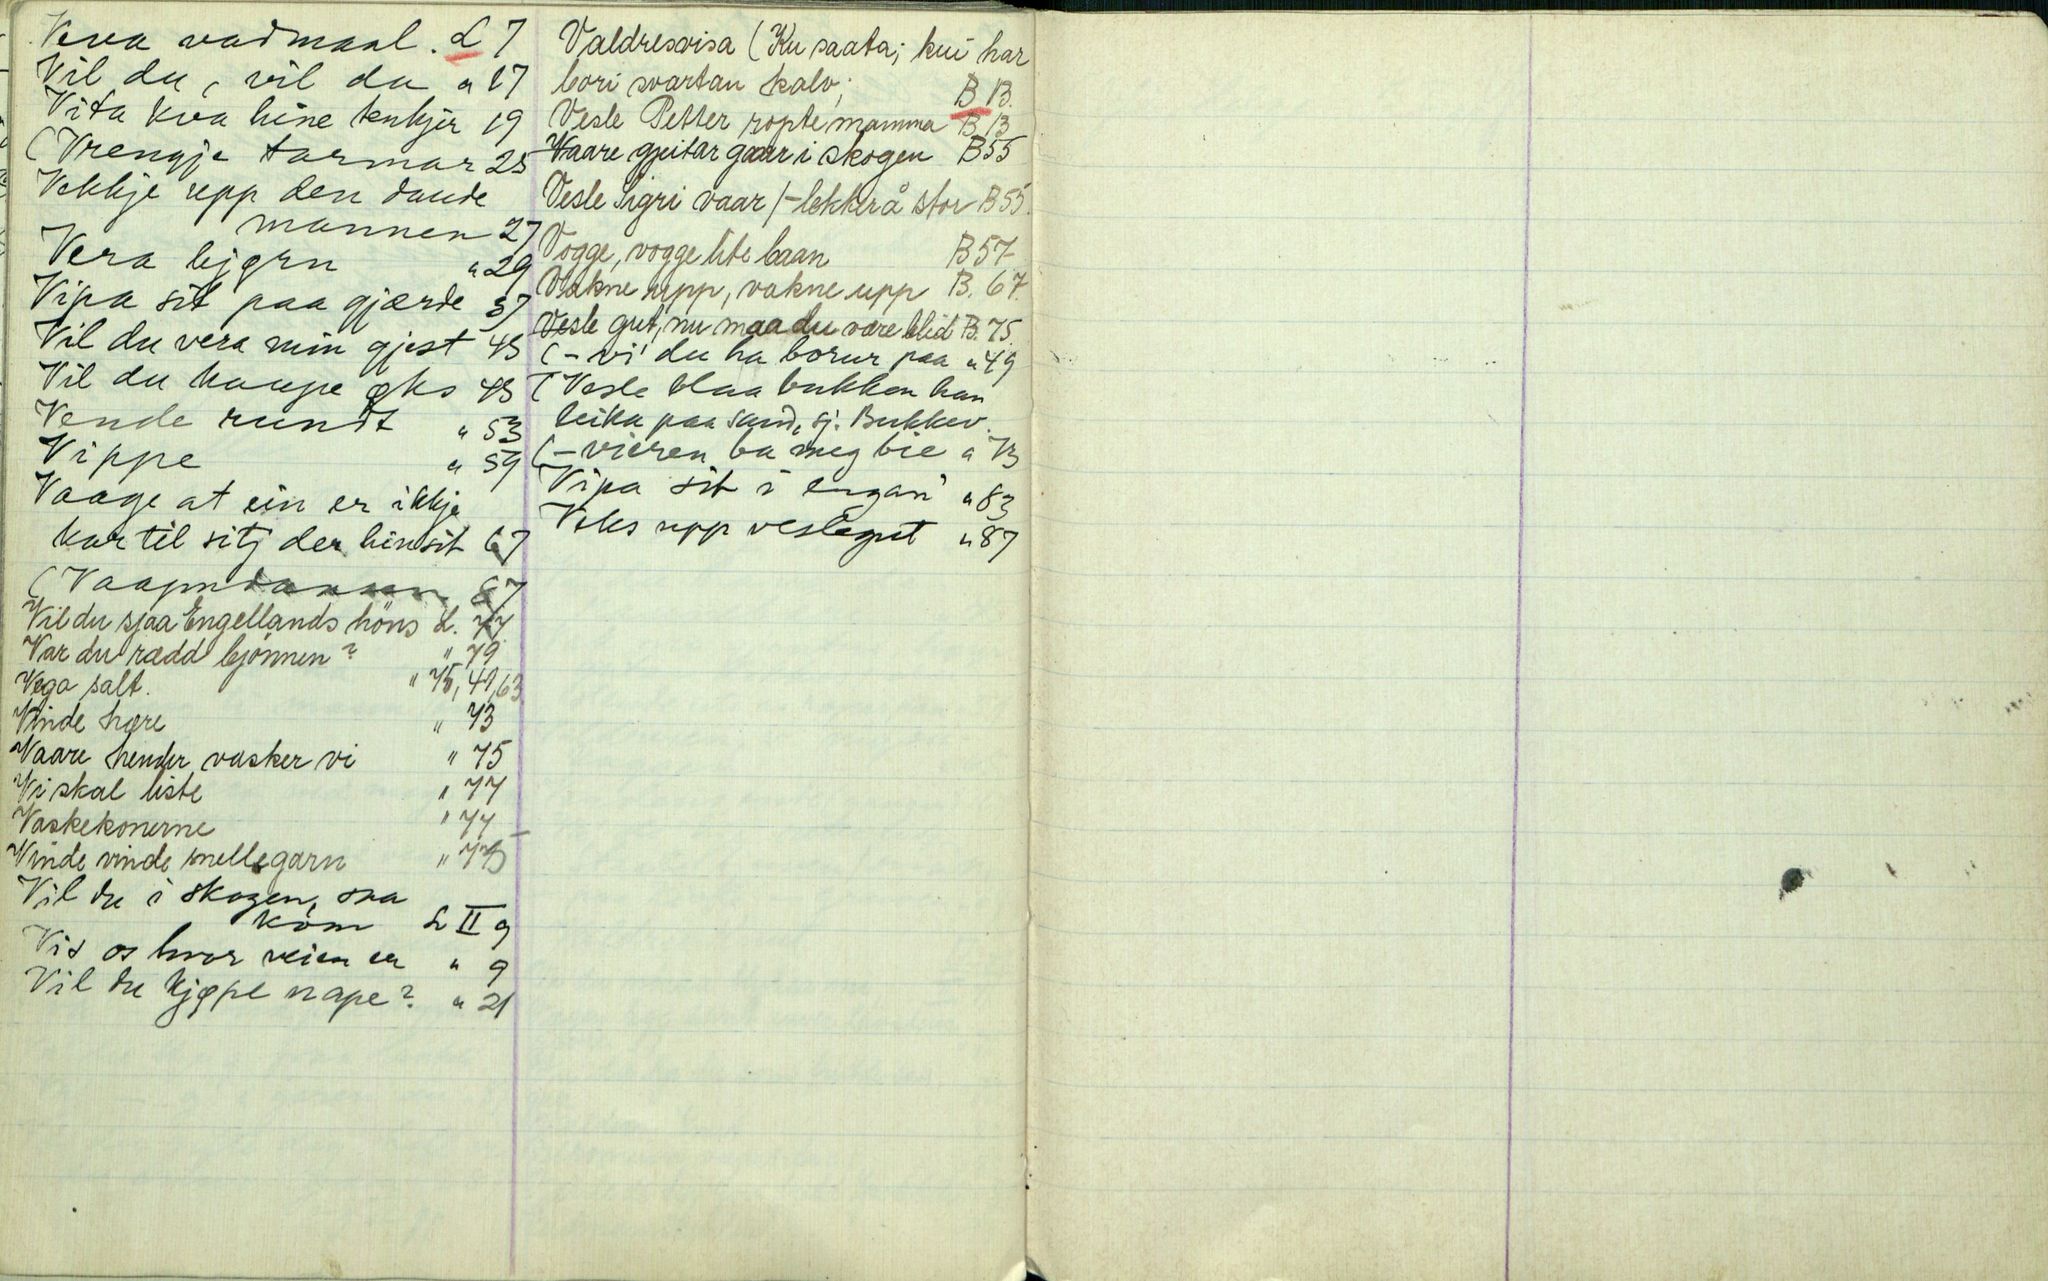 Veva vadmaal. L 7
Vil du, vil du " 17
Vita kva hine tenkjer 19
(Vrengje tarmar 25
Vekkje upp den daude
mannen 27
Vera bjørn " 29
Vipa sit paa gjærde 37
Vil du vera min gjest 45
Vil du kaupe øks 45
Vende rundt " 53
Vippe " 59
Vaage at ein er ikkje
kar til sitj der hin sit 67
(Vaapndansen 67
Vil du sjaa Engellands høns L. 77
Var du rædd bjønnen? " 79
Vega salt. " 75, 41, 63
Vinde hære " 73
Vaare hender vasker vi " 75
Vi skal liste " 77
Vaskekonerne " 77
Vinde vinde snellegarn " 75
Vil du i skogen, saa
kom L II 9
Vis os hvor veien er " 9
Vil du kjøpe nape? " 21
Valdresvisa (Ku saata; kui har
bori svartan kalv; B 13.
Vesle Petter ropte mamma B. 13
Vaare gjeitar gaar i skogen B 55
Vesle Sigri vaar /-lekker å stor B 55.
Vogge, vogge lite baan B 57
Vakne upp, vakne upp B. 67.
Vesle gut, nu maa du være blid B. 75.
(- vi' du ha borur paa " 49
(Vesle blaa bukken han
leika paa sand, sj. Bukkev.
(- vieren ba meg bie " 73
Vipa sit i engan' " 83
Veks upp veslegut " 87